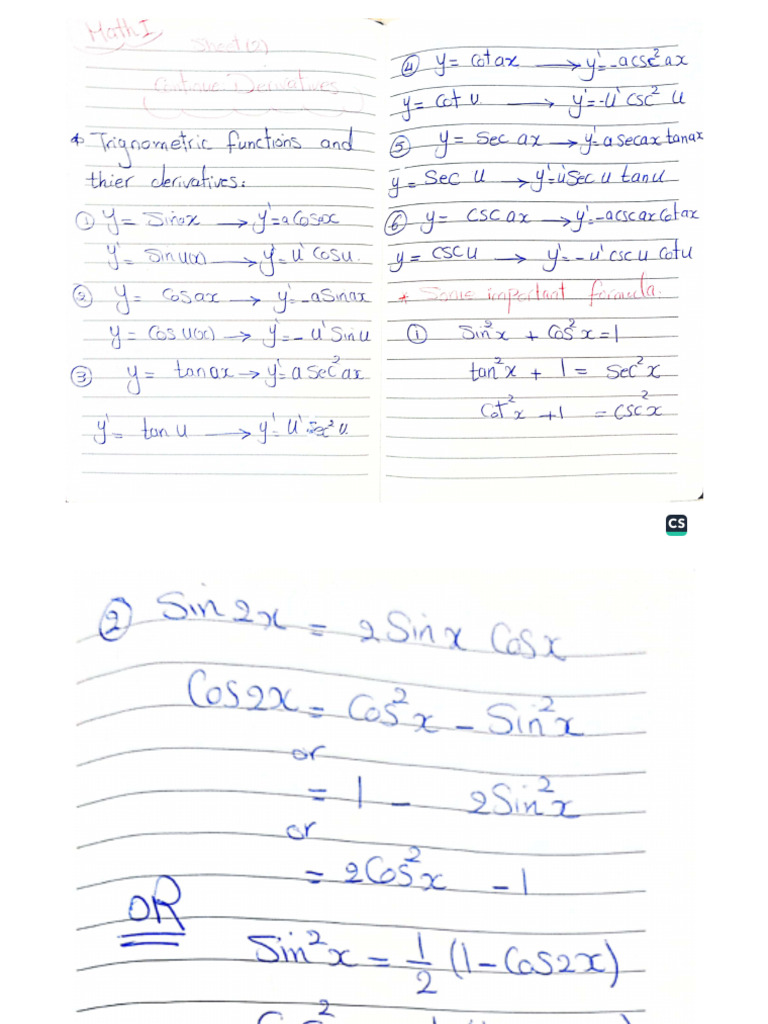 Math I
Sheet (2)
Continue Derivatives
* Trignometric functions and
thier derivatives:
① y = Sin ax → y' = a Cos ax
y' = Sin u(x) → y' = u' Cos u.
② y = Cos ax → y' = -a Sin ax
y = Cos u(x) → y' = - u' Sin u
③ y = tan ax → y' = a Sec² ax
y' = tan u → y' = u' Sec² u.
④ y = Cot ax → y' = -a csc² ax
y = Cot u → y' = -u' csc² u
⑤ y = Sec ax → y' = a sec ax tan ax
y = Sec u → y' = u' Sec u tan u
⑥ y = csc ax → y' = -a csc ax Cot ax
y = csc u → y' = - u' csc u Cot u
* Some important formula.
① Sin²x + Cos²x = 1
tan²x + 1 = Sec²x
Cot²x + 1 = csc²x
CS
② Sin 2x = 2 Sin x Cos x
Cos 2x = Cos²x - Sin²x
or
= 1 - 2 Sin²x
or
= 2 Cos²x - 1
OR
Sin²x = 1/2 (1 - Cos 2x)